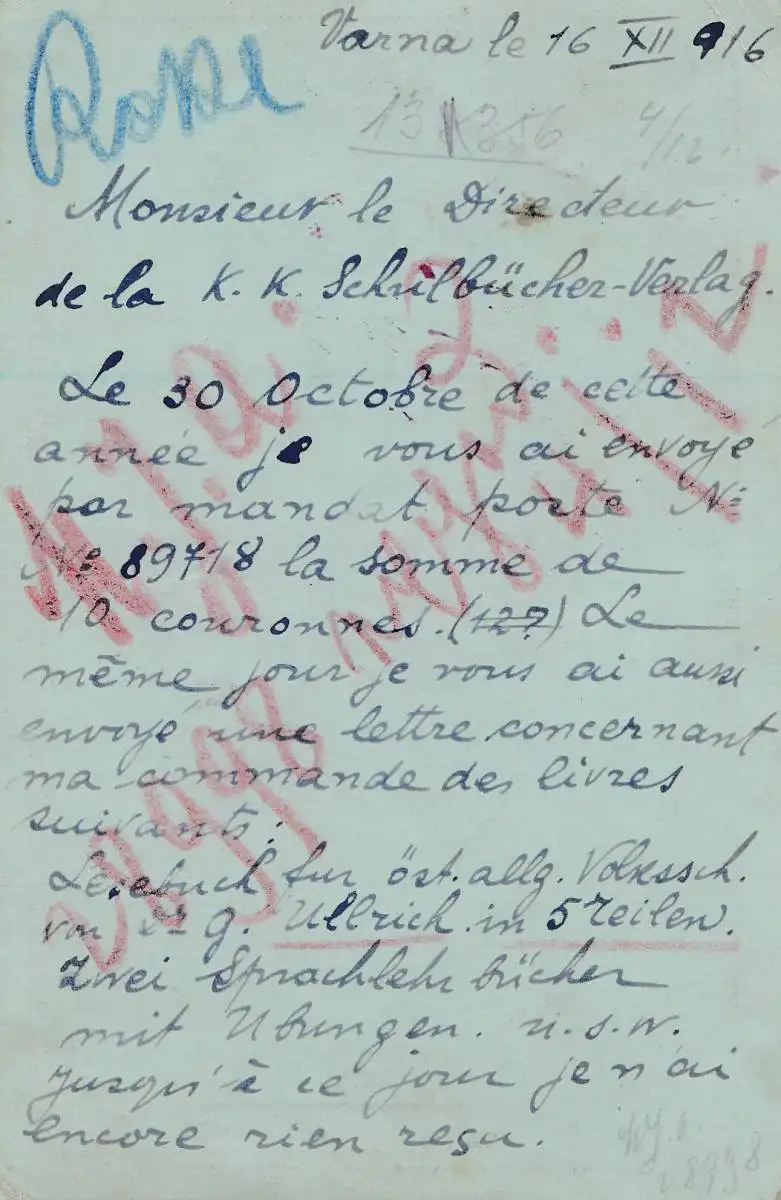 Varna le 16 XII 916
Monsieur le Directeur
de la K. K. Schulbücher-Verlag.
Le 30 Octobre de cette
année je vous ai envoye
par mandat poste No
No 89718 la somme de
10 couronnes. (127) Le
même jour je vous ai aussi
envoyé une lettre concernant
ma commande des livres
suivants:
Lesebuch fur öst. allg. Volkssch.
von Dr G. Ullrich in 5 Teilen.
Zwei Sprachlehrbücher
mit Übungen. u.s.w.
Jusqu'à ce jour je n'ai
encore rien reçu.